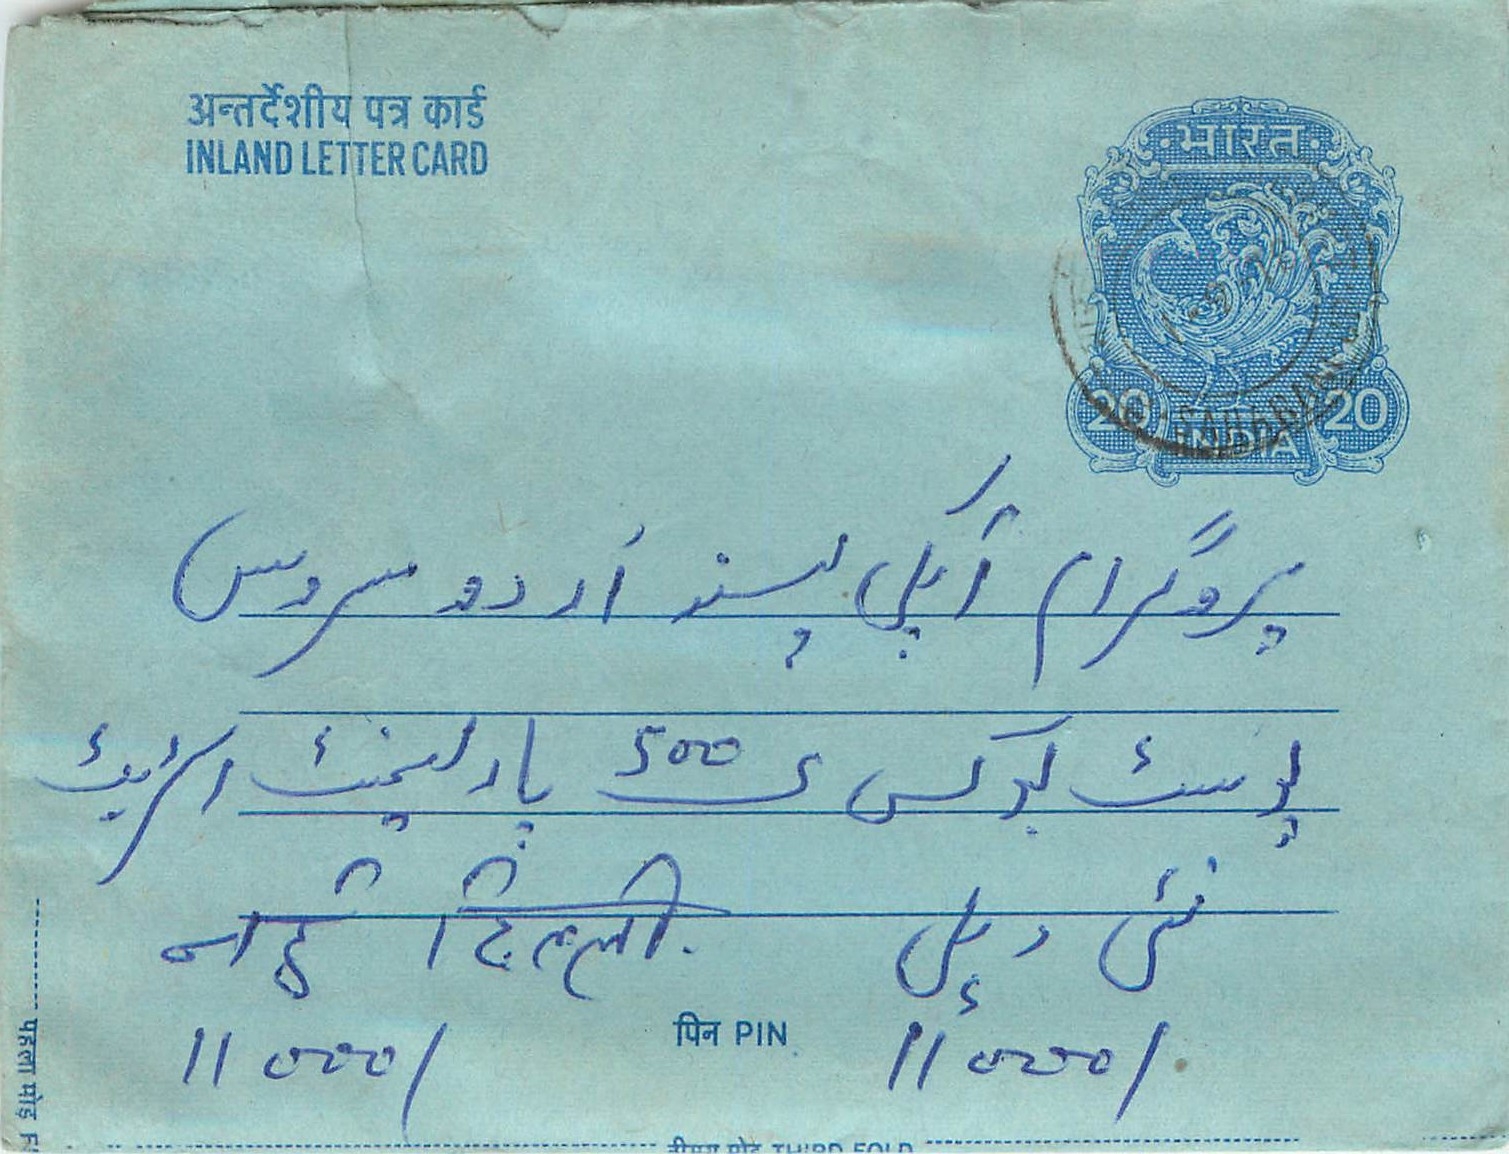 अन्तर्देशीय पत्र कार्ड
INLAND LETTER CARD
भारत
20 20
INDIA
پروگرام آپکی پسند اُردو سروس
پوسٹ بوکس 500 پارلیمنٹ اسٹریٹ
نئی دہلی नई दिल्ली.
पिन PIN
110001 110001
पहला मोड़
तीसरा मोड़ THIRD FOLD